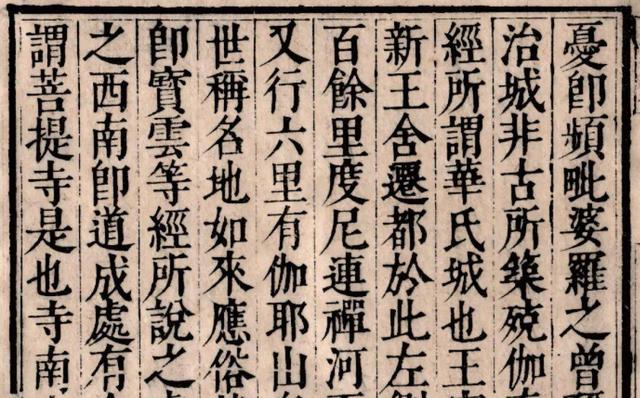 憂卽頻毗婆羅之曾
治城非古所築殑伽
經所謂華氏城也王
新王舍遷都於此左
百餘里度尼連禪河
又行六里有伽耶山
世稱名地如來應俗
卽寶雲等經所說之
之西南卽道成處有
謂菩提寺是也寺南